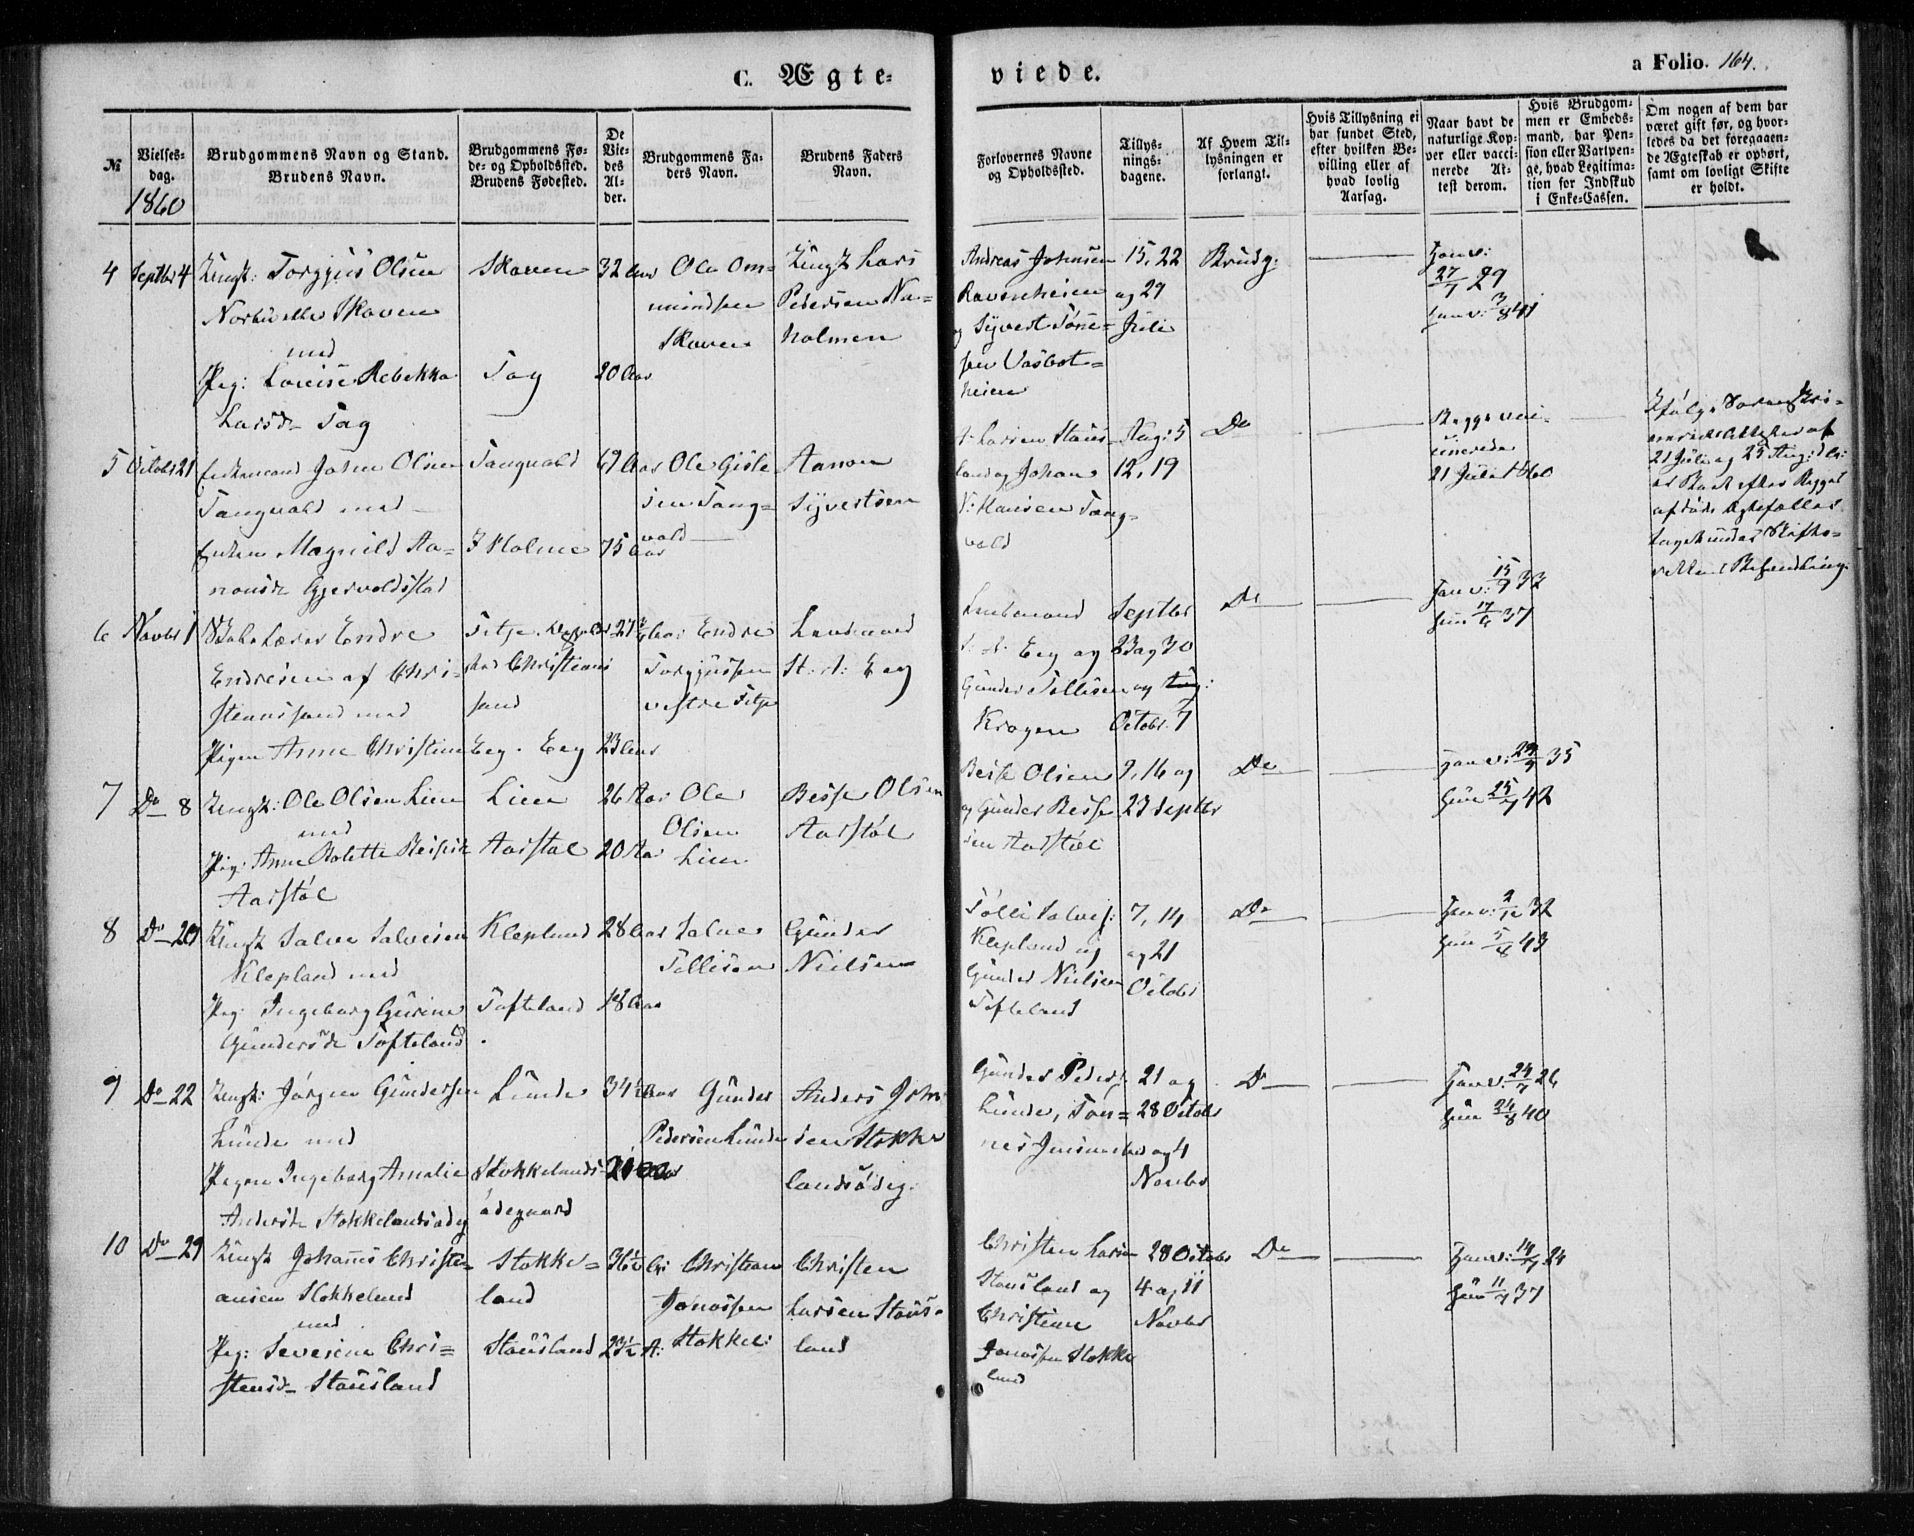 C. Ægte-
viede.
a Folio. 164.
№
Vielses-
dag.
1860
Brudgommens Navn og Stand.
Brudens Navn.
Brudgommens Fø-
de- og Opholdssted.
Brudens Fødested.
De
Vie-
des
Al-
der.
Brudgommens Fa-
ders Navn.
Brudens Faders
Navn.
Forlovernes Navne
og Opholdssted.
Tillys-
nings-
dagene.
Af Hvem Til-
lysningen er
forlangt.
Hvis Tillysning ei
har fundet Sted,
efter hvilken Be-
villing eller af
hvad lovlig
Aarsag.
Naar havt de
naturlige Kop-
per eller vacci-
nerede At-
test derom.
Hvis Brudgom-
men er Embeds-
mand, har Pen-
sion eller Vartpen-
ge, hvad Legitima-
tion for Indskud
i Enke-Cassen.
Om nogen af dem har
været gift før, og hvor-
ledes da det foregaaen-
de Ægteskab er ophørt,
samt om lovligt Skifte
er holdt.
4
Septbr 4
Ungk: Torgjus Olsen
Skaven
med
Pig: Lovise Rebekka
Larsd. Tag
Skaven
Tag
32 Aar
20 Aar
Ole Om-
mundsen
Skaven
Ungk Lars
Pedersen
holmen
Andreas Johnsen
Ravnheien
og Syvert Tørre-
sen
heien
15, 22
og 29
Juli
Brudg.
Han v:
27/1 29
3/8 41
5
Octobr 21
Enkemand John Olsen
Tangvald med
Enken Magnild Aa-
nonsd. Gjervoldstad
Tangvald
Holme
69 Aar
75 Aar
Ole Gisle-
sen Tang-
vald
Aanon
Syvertsen
Larsen Staus-
land og Johan
Hansen Tang-
vald
Aug: 5
12, 19
Do
Begge vac-
cinerede
21 Juli 1860
21 Juli og 25 Aug:
6
Novbr 1
Endre
Endresen af Chri-
stianssand med
Pigen Anne Christine Eeg. Eeg
Christians
sand
23 Aar
Endre
Torgjussen
vestre Fitje
Lensmand
St. A: Eeg
Lensmand
Eeg og
Gunder Tellisen
Kragen
Septbr
23 og 30
og
Octobr. 7
Do
Han v: 15/9 32
Hun 17/6 37
7
Do 8
Ungk: Ole Olsen Lien
med
Pig: Anne Bolette Beisesd.
Aarstøl
Lien
Aarstøl
26 Aar
20 Aar
Ole
Olsen
Lien
Besse Olsen
Aarstøl
Besse Olsen
og Gunder Besse
sen Aarstøl
9, 16 og
23 Septbr
Do
Han v: 29/9 35
Hun 25/7 42
8
Do 20
Ungk Salve Salvesen
Klepland med
Pig: Ingeborg Gurine
Gundersd. Tofteland
Klepland
Tofteland
28 Aar
18 Aar
Salve
Tellisen
Gunder
Nielsen
Tølli Salves:
Klepland og
Gunder Nielsen
Tofteland
7, 14
og 21
Octobr
Do
Han v: 9/12 32
Hun 5/8 43
9
Do 22
Ungk: Jørgen Gundersen
Lunde med
Pigen Ingeborg Amalie
Andersd. Stokkelandsødeg
Lunde
Stokkelands-
ødegaard
34 Aar
Gunder
Pedersen Lunde
Anders John-
sen Stokke
landsødeg.
Gunder Peders:
Lunde, Tøn-
nes
21 og
28 Octobr
og 4
Novbr
Do
Han v: 24/7 26
Hun 24/8 40
10
Do 29
Ungk Johannes Christi-
ansen Stokkeland
med
Pig: Severine Chri-
stensd. Stausland
Stokke-
land
Stausland
36½ A:
23½ A:
Christian
Jonassen
Stokkel:
Christen
Larsen Staus-
land
Christen Larsen
Stausland og
Christian
Jonassen Stokke
land
28 Octobr
4 og 11
Novbr
Do
Han v: 14/7 24
Hun 11/7 37